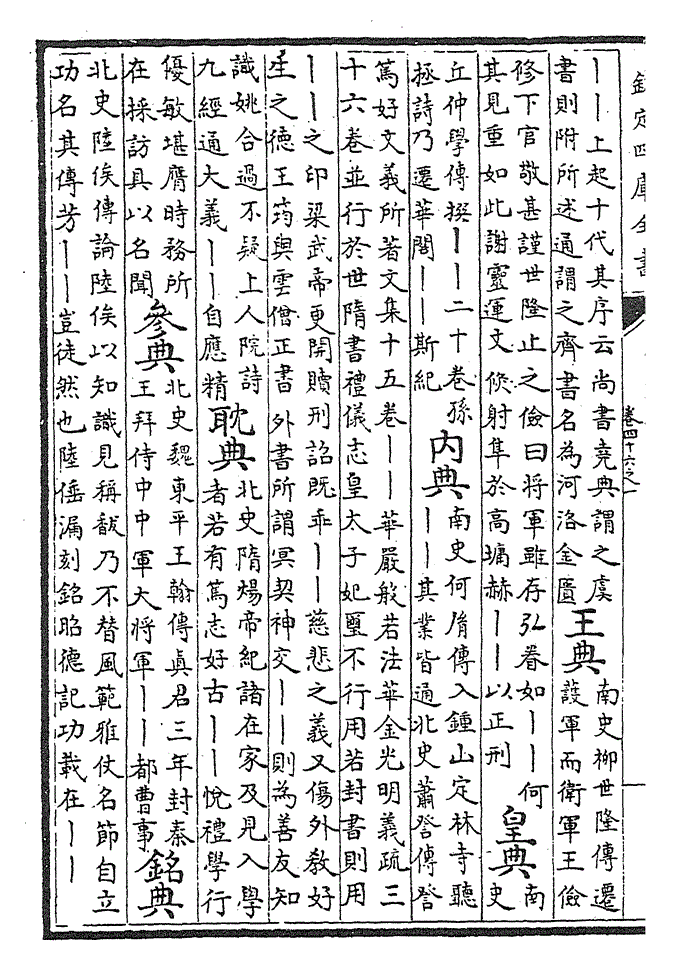 欽定四庫全書
卷四十六之一
——上起十代其序云尚書堯典謂之虞
書則附所述通謂之齊書名為河洛金匱
王典
南史柳世隆傳遷
護軍而衛軍王儉
修下官敬甚謹世隆止之儉曰將軍雖存弘眷如——何
其見重如此謝靈運文倏射隼於高墉赫——以正刑
皇典
南
史
丘仲學傳撰——二十卷孫
拯詩乃遷華閣——斯紀
內典
南史何胤傳入鍾山定林寺聽
——其業皆通北史蕭詧傳詧
篤好文義所著文集十五卷——華嚴般若法華金光明義疏三
十六卷並行於世隋書禮儀志皇太子妃璽不行用若封書則用
——之印梁武帝更開贖刑詔既乖——慈悲之義又傷外教好
生之德王筠與雲僧正書 外書所謂冥契神交——則為善友知
識姚合過不疑上人院詩
九經通大義——自應精
耽典
北史隋煬帝紀諸在家及見入學
者若有篤志好古——悅禮學行
優敏堪膺時務所
在採訪具以名聞
參典
北史魏東平王翰傳真君三年封秦
王拜侍中中軍大將軍——都曹事
銘典
北史陸俟傳論陸俟以知識見稱馛乃不替風範雅仗名節自立
功名其傳芳——豈徒然也陸倕漏刻銘昭德記功載在——